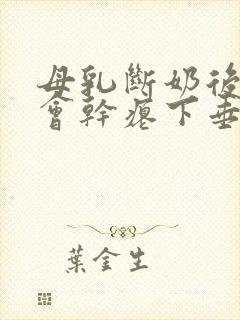 母乳斷奶後
會幹癟下垂
葉金生